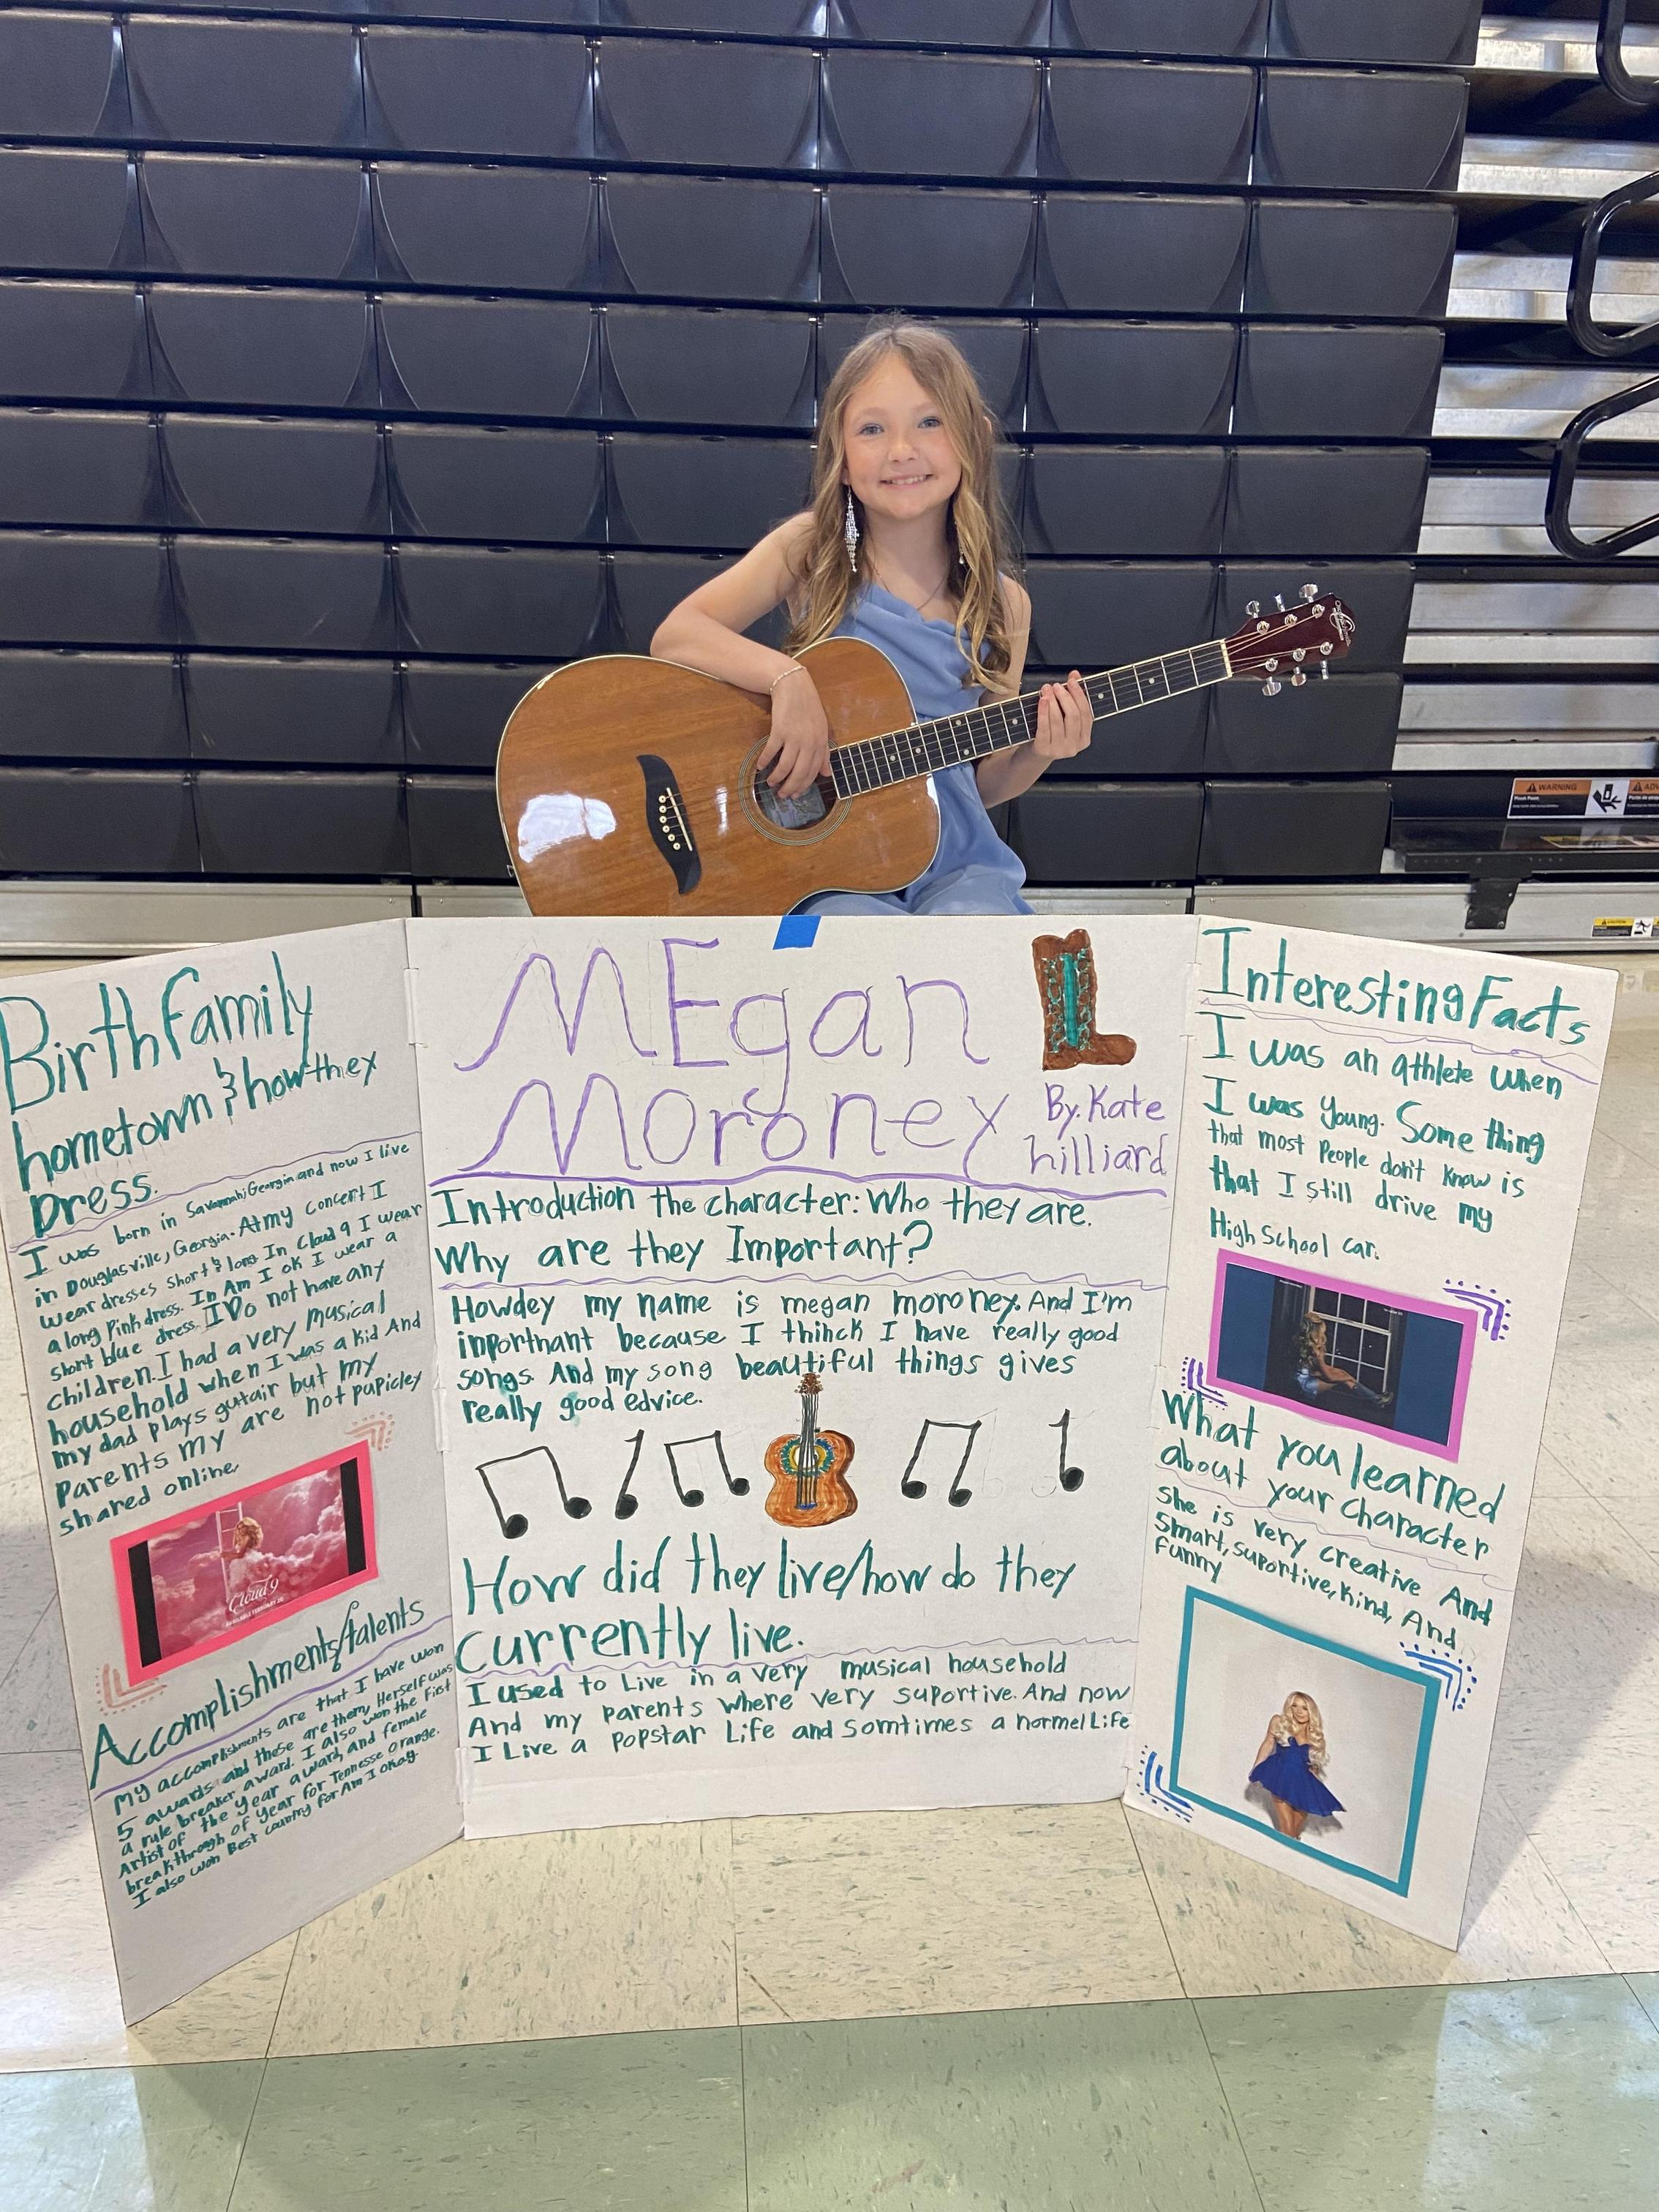 Birth family
hometown & how they
Dress.
I was born in Savannah, Georgia and now I live
in Douglasville, Georgia. At my concert I
wear dresses short & long. In Cloud 9 I wear
a long Pink dress. In Am I ok I wear a
short blue dress. I Do not have any
children. I had a very musical
household when I was a kid And
my dad plays gutair but my
Parents my are not papicley
shared online.
Cloud 9
AVAILABLE FEBRUARY 20
Accomplishments/talents
My accomplishments are that I have won
5 awards. and these are them, Herself was
a rule breaker award. I also won the First
Artist of the year award, and female
breakthrough of year for Tennesse Orange.
I also won Best country for Am I Okay.
MEgan
Moroney
By. Kate
hilliard
Introduction the character: Who they are.
Why are they Important?
Howdey my name is megan moroney. And I'm
inportnant because I thinck I have really good
songs. And my song beautiful things gives
really good edvice.
How did they live/how do they
Currently live.
I used to Live in a very musical household
And my parents where very suportive. And now
I Live a popstar Life and somtimes a normel Life
Interesting Facts
I was an athlete when
I was young. Some thing
that most People don't know is
that I still drive my
High School car.
What you learned
about your character
She is very creative And
Smart, suportive, kind, And
funny
WARNING